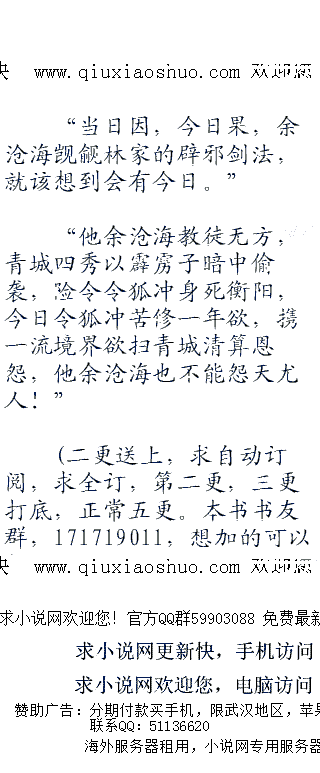 快  www.qiuxiaoshuo.com 欢迎您
“当日因，今日果，余
沧海觊觎林家的辟邪剑法，
就该想到会有今日。”
“他余沧海教徒无方，
青城四秀以霹雳子暗中偷
袭，险令令狐冲身死衡阳，
今日令狐冲苦修一年欲，携
一流境界欲扫青城清算恩
怨，他余沧海也不能怨天尤
人！”
(二更送上，求自动订
阅，求全订，第二更，三更
打底，正常五更。本书书友
群，171719011，想加的可以
快  www.qiuxiaoshuo.com 欢迎您
求小说网欢迎您! 官方QQ群59903088 免费最新
求小说网更新快，手机访问
求小说网欢迎您，电脑访问
赞助广告: 分期付款买手机，限武汉地区，苹果
联系QQ: 51136620
海外服务器租用，小说网专用服务器